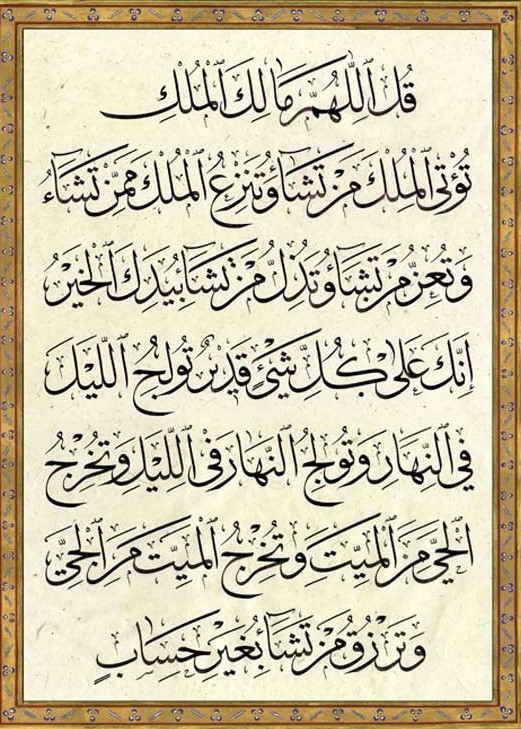 قُلِ ٱللَّهُمَّ مَالِكَ ٱلْمُلْكِ
تُؤْتِى ٱلْمُلْكَ مَنْ تَشَاۤءُ وَتَنْزِعُ ٱلْمُلْكَ مِمَّنْ تَشَاۤءُ
وَتُعِزُّ مَنْ تَشَاۤءُ وَتُذِلُّ مَنْ تَشَاۤءُ بِيَدِكَ ٱلْخَيْرُ
اِنَّكَ عَلٰى كُلِّ شَيْءٍ قَدِيرٌ تُولِجُ ٱللَّيْلَ
فِي ٱلنَّهَارِ وَتُولِجُ ٱلنَّهَارَ فِى ٱللَّيْلِ وَتُخْرِجُ
ٱلْحَيَّ مِنَ ٱلْمَيِّتِ وَتُخْرِجُ ٱلْمَيِّتَ مِنَ ٱلْحَيِّ
وَتَرْزُقُ مَنْ تَشَاۤءُ بِغَيْرِ حِسَابٍ